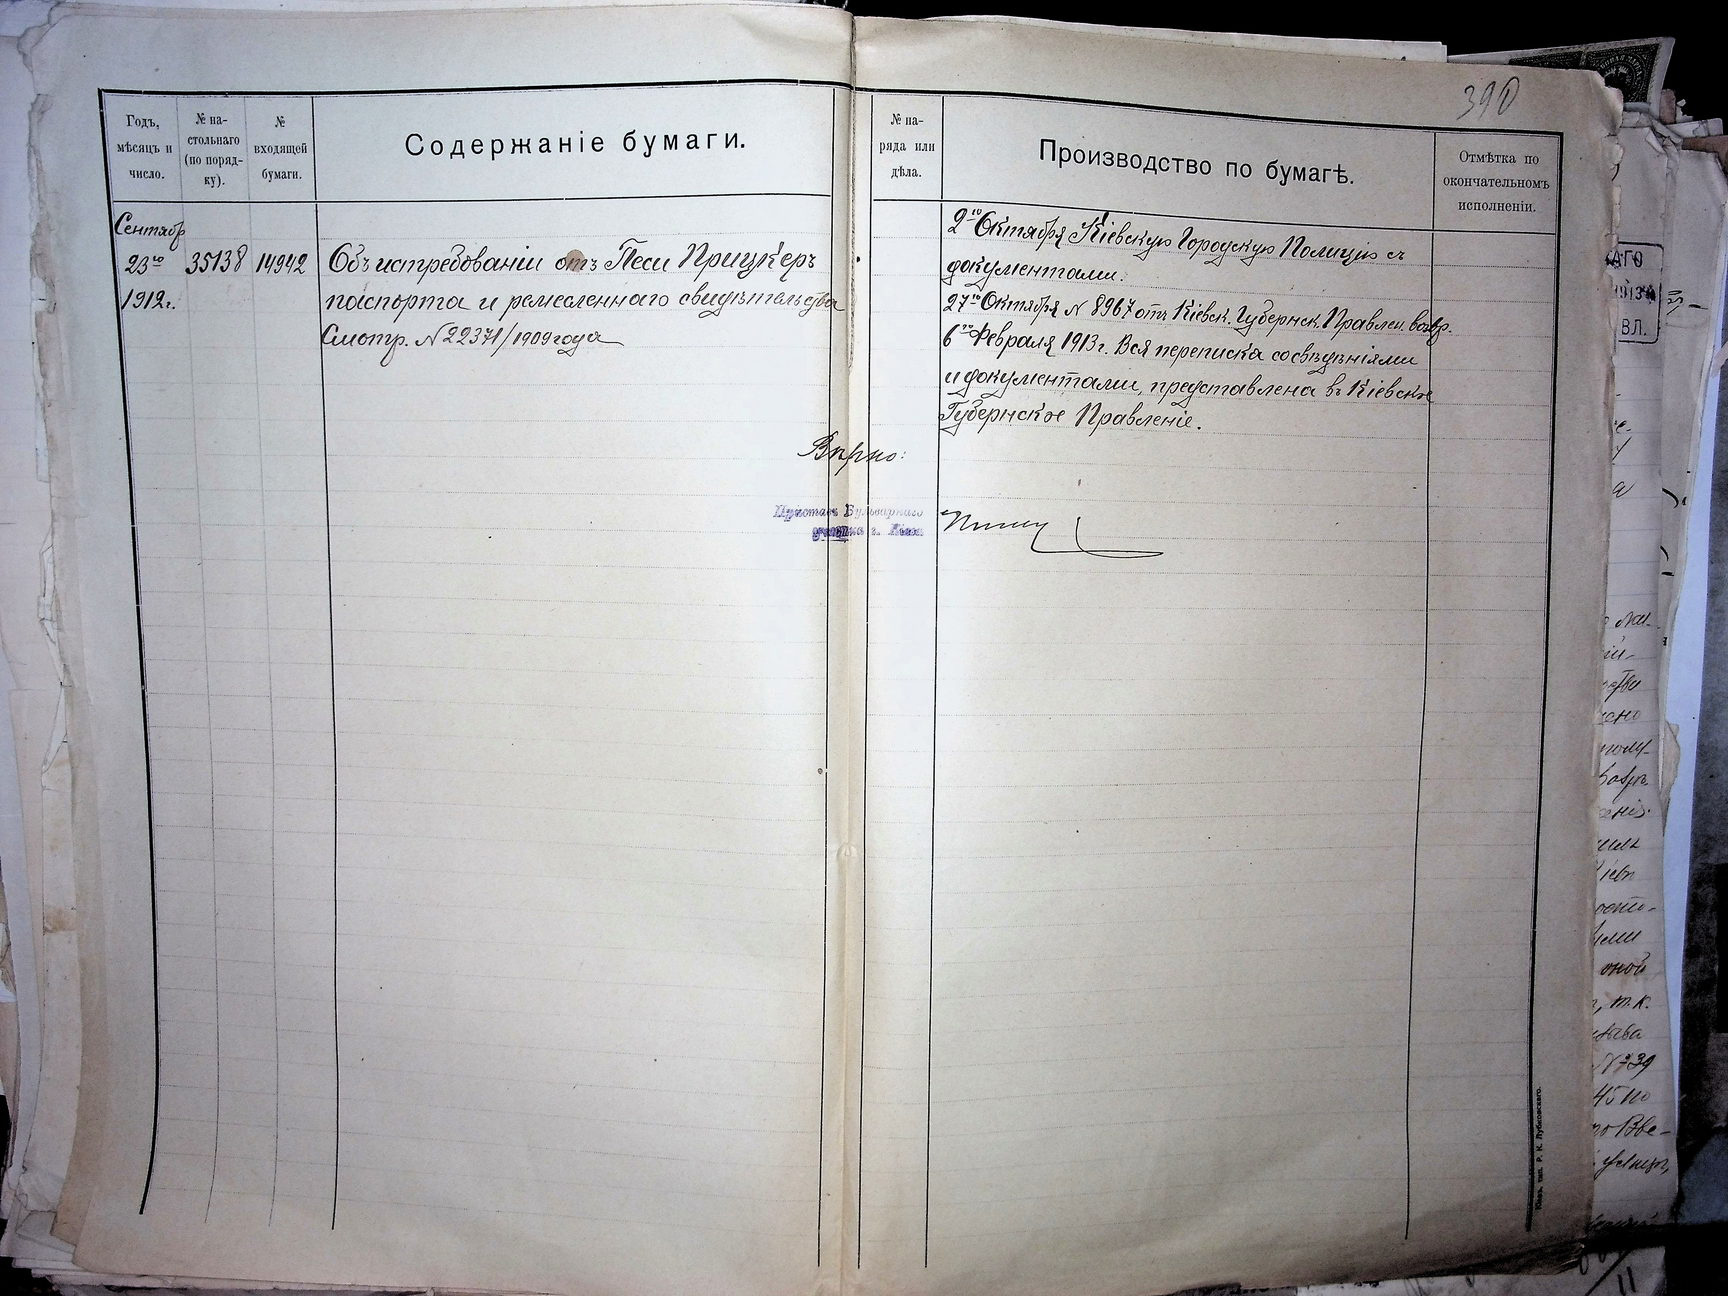 390
Годъ, мѣсяцъ и число.
№ настольнаго (по порядку).
№ входящей бумаги.
Содержаніе бумаги.
№ наряда или дѣла.
Производство по бумагѣ.
Отмѣтка по окончательномъ исполненіи.
Сентябр
23го 35138 14942 Объ истребованіи отъ Песи Прицкеръ
1912г. паспорта и ремесленнаго свидѣтельства
Смотр. № 22371/1909 года
2го Октября Кіевскую Городскую Полицію съ
документами.
27го Октября № 8967 отъ Кіевск. Губернск. Правлен. возвр.
6го Февраля 1913г. Вся переписка со свѣдѣніями
и документами, представлена въ Кіевское
Губернское Правленіе.
Вѣрно:
Приставъ Бульварнаго
участка г. Кіева
Кіевъ, тип. Р. К. Лубковскаго.